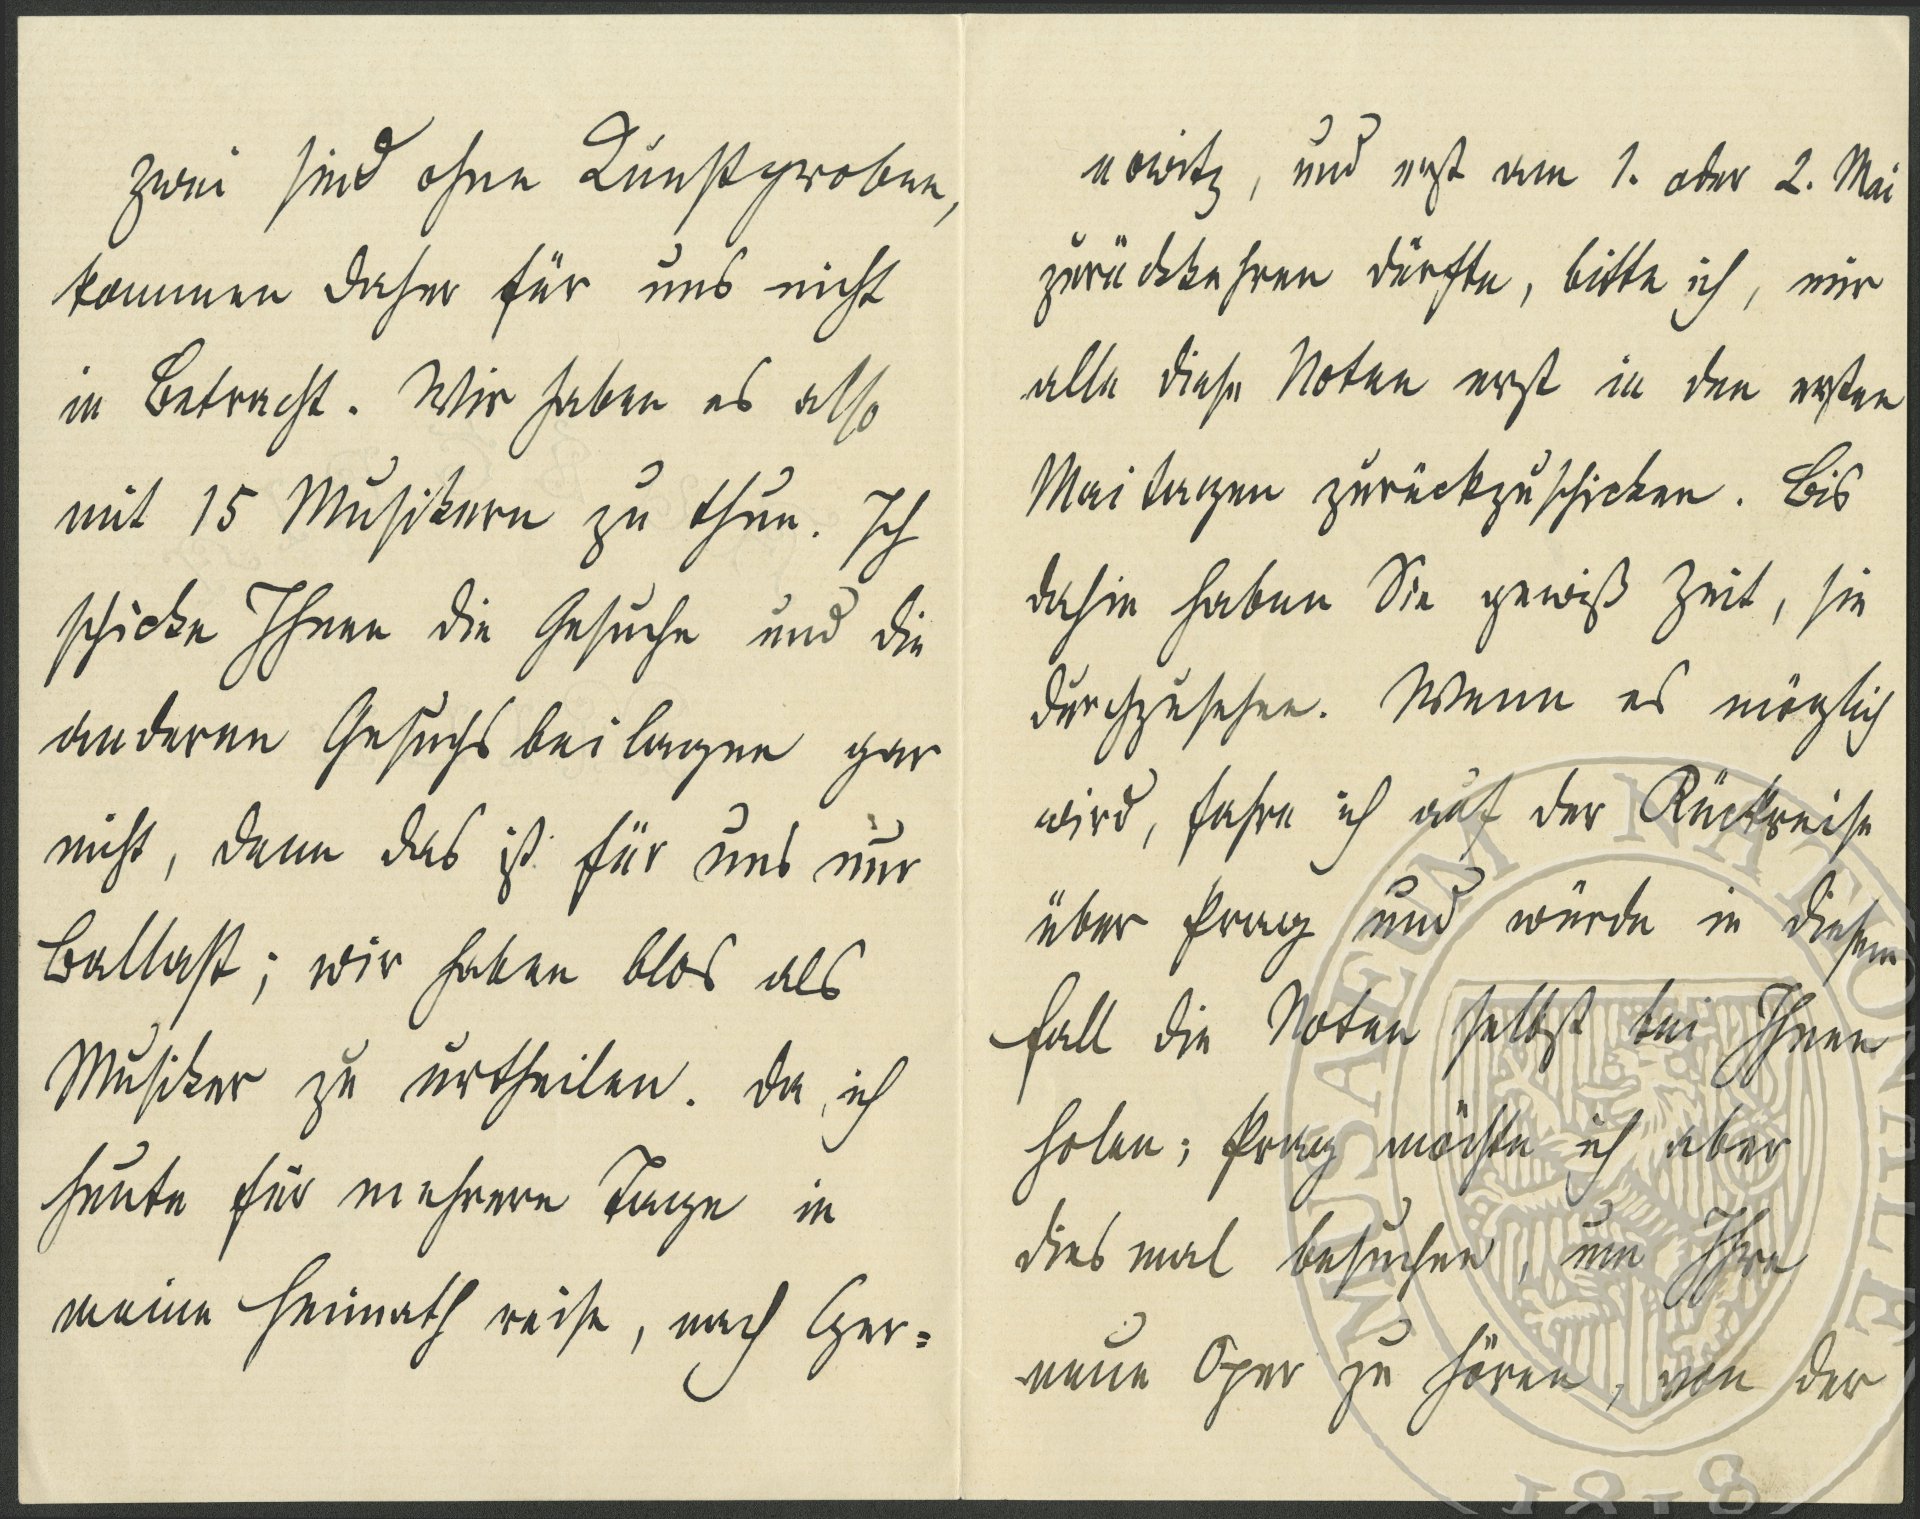 zwei sind ohne Kunstproben,
kommen daher für uns nicht
in Betracht. Wir haben es also
mit 15 Musikern zu thun. Ich
schicke Ihnen die Gesuche und die
anderen Gesuchsbeilagen gar
nicht, denn das ist für uns nur
Ballast; wir haben blos als
Musiker zu urtheilen. Da ich
heute für mehrere Tage in
meine Heimath reise, nach Czer=
nowitz, und erst am 1. oder 2. Mai
zurückkehren dürfte, bitte ich, mir
alle diese Noten erst in den ersten
Maitagen zurückzuschicken. Bis
dahin haben Sie gewiß Zeit, sie
durchzusehen. Wenn es möglich
wird, fahre ich auf der Rückreise
über Prag und würde in diesem
Fall die Noten selbst bei Ihnen
holen; Prag möchte ich aber
diesmal besuchen, um Ihre
neue Oper zu hören, von der
MUSAEUM NATIONALE
1818